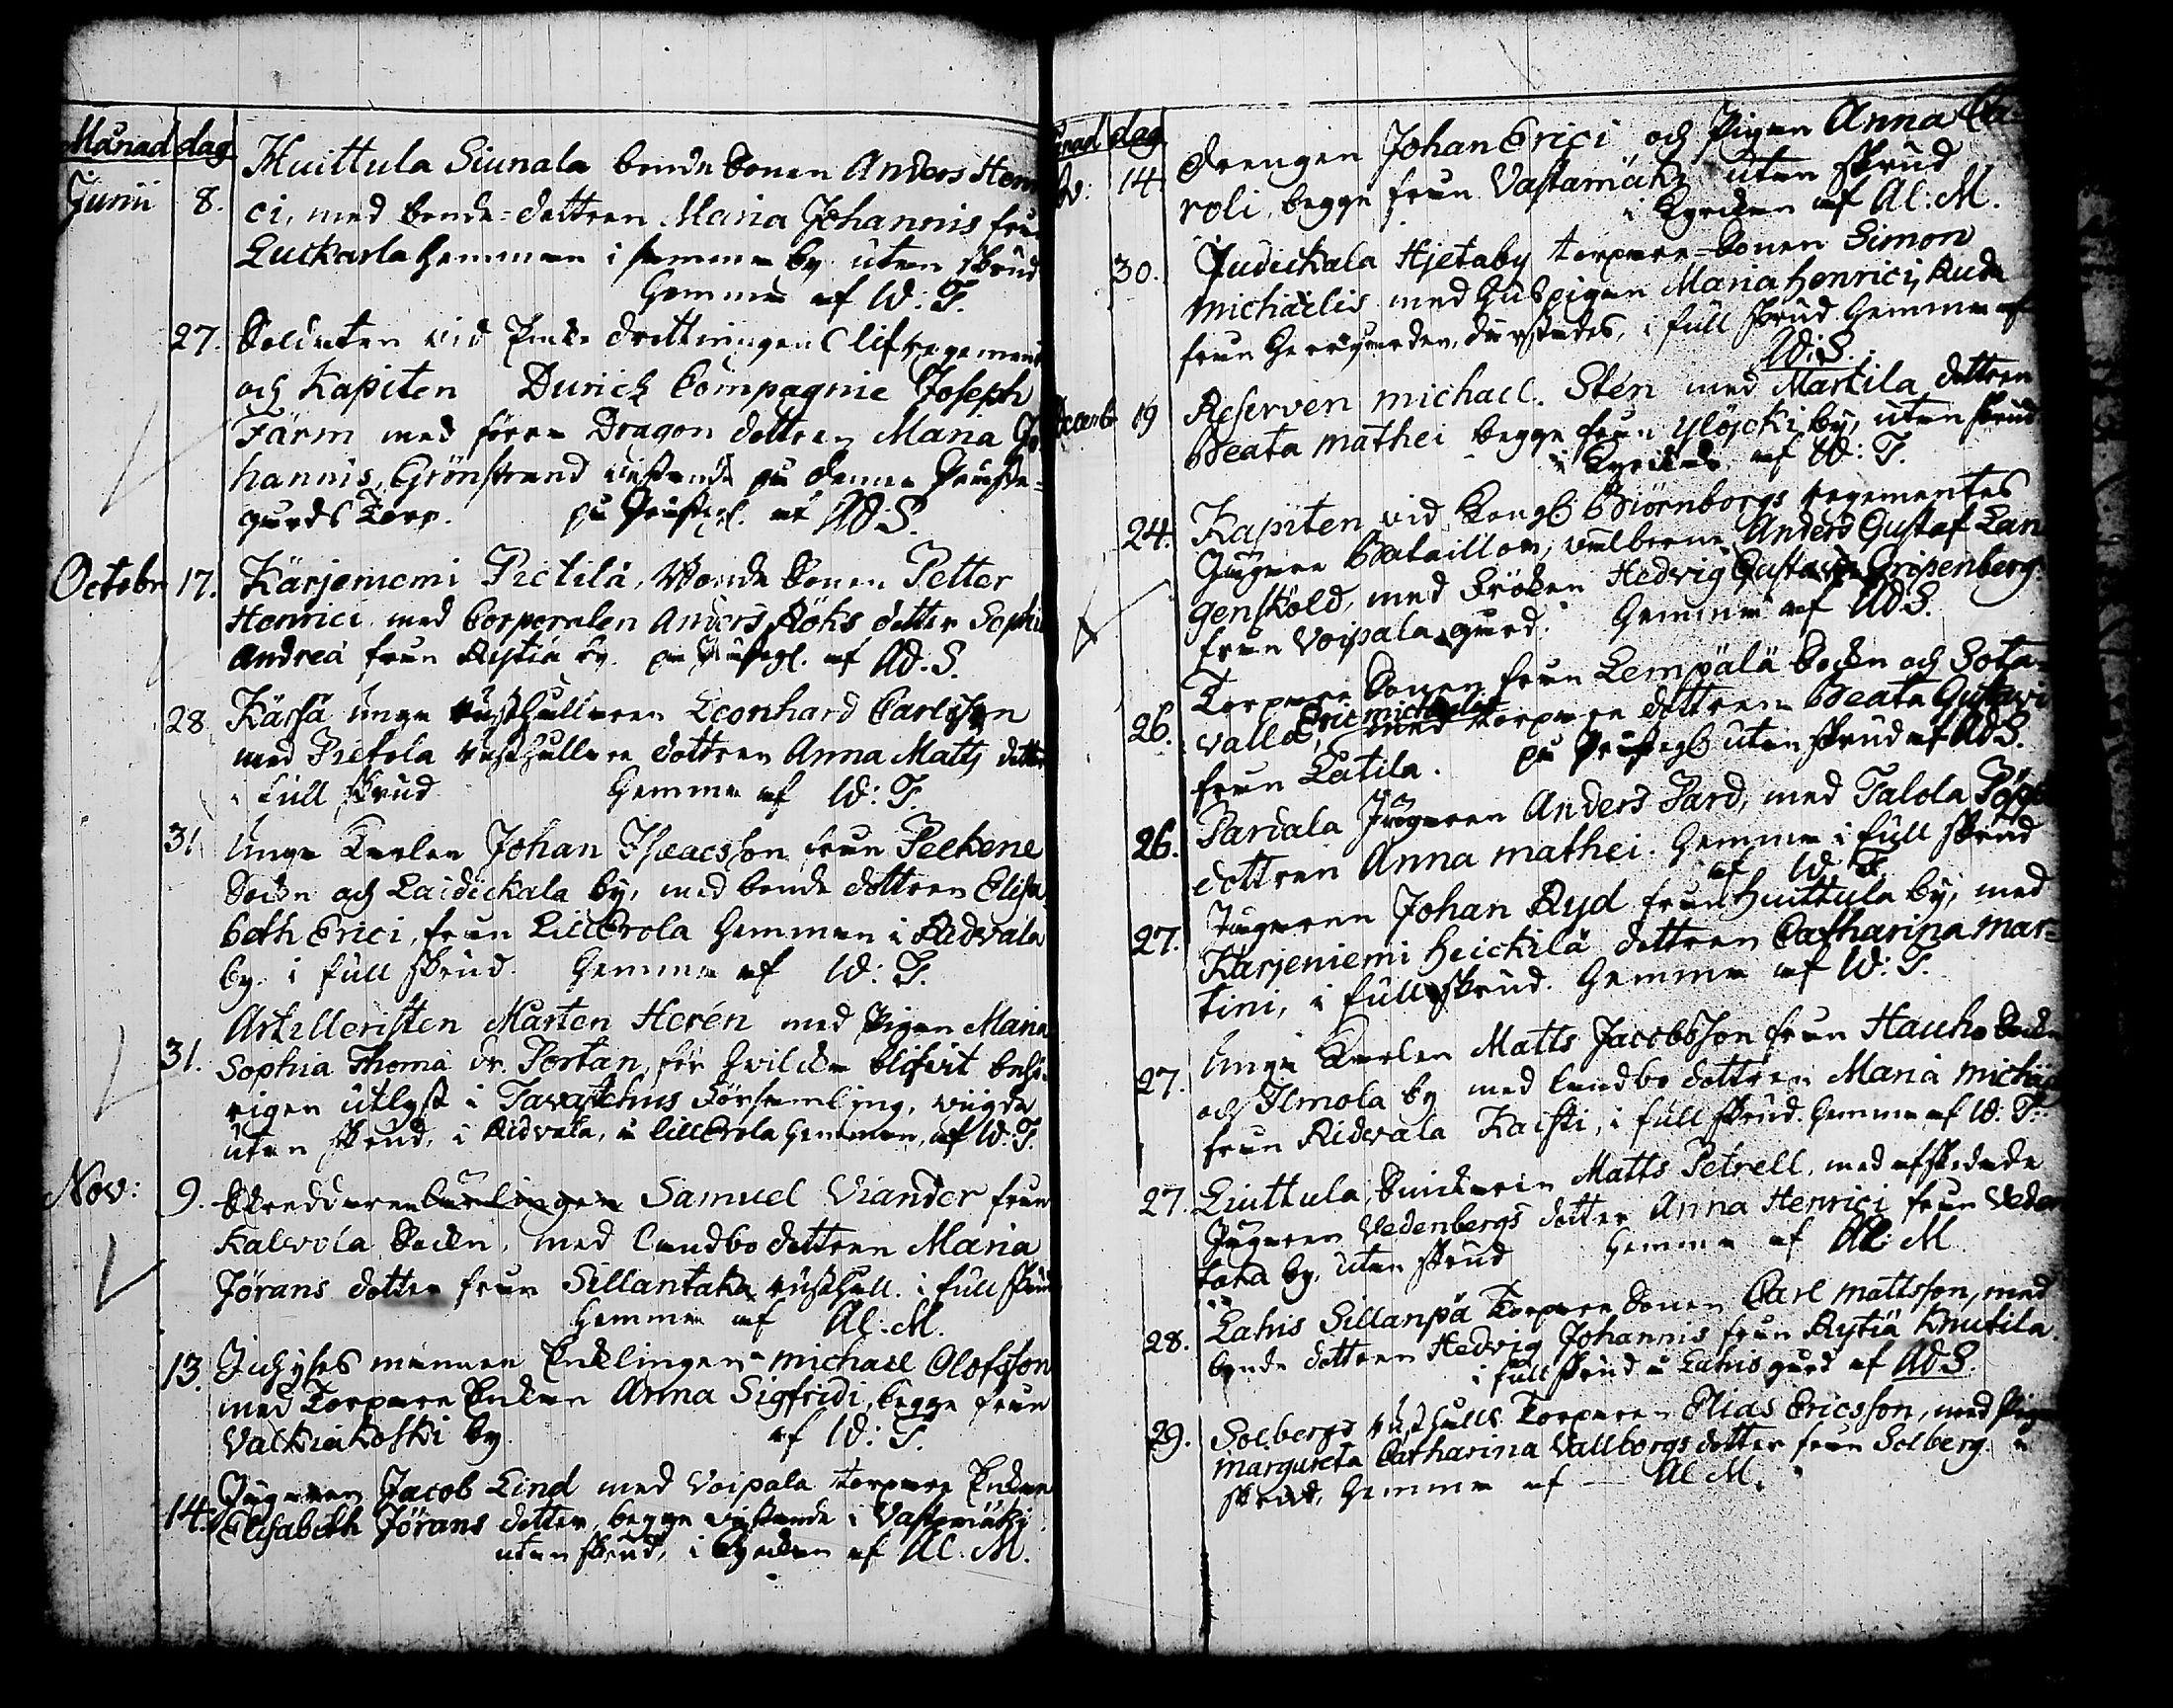 Månad dag
Junii 8. Huittula Siunala bonde Sonen Anders Hen
ci, med bonde=dottren Maria Johannis från
Luckarla hemman i samma by utan skrud
hemma af W: T.
27. Soldaten vid Enke drottningens lifregement
och Kapiten Durick Compagnie Joseph
Färm med förra Dragon dottren Maria Jo
hannis, Grönstrand vistande på denna Preste=
gårds Torp. på Prestegl. af Ad: S.
Octobr 17. Kärjeniemi Pietilä, Bonde Sonen Petter
Henrici med Corporalen Anders Röks dotter Sophia
Andreä från Rytiä by. på Prestegl. af Ad. S.
28. Kärsä unga rusthållaren Leonhard Carlsson
med rusthållare dottren Anna Matts dotter
i full skrud hemma af W: T.
31. Unga Karlen Johan Isaacsson från Pelkene
Sockn och Laidickala by, med bonde dottren Elisa
beth Erici, från LillErola hemman i Ridvala
by. i full skrud. hemma af W: T.
31. Artilleristen Mårten Herén med Pigan Maria
Sophia Thomä dr. Portan, för hvilcka blifvit behö
rigen utlyst i Tavastehus Församling, vigda
utan skrud, i Ridvala, å LillErola hemman, af W: T.
Nov: 9. Skreddaren Samuel Viander från
Kalvola Sockn, med landbo dottren Maria
Jörans dotter från Sillantaka rusthåll. i full skrud
hemma af Al. M.
13. mannen Enklingen michael Olofsson
med Torpare Enkan Anna Sigfridi, begge från
Valkiakoski by af W: T.
14. Jägaren Jacob Lind med Voipala torpare Enkan
Elisabeth Jörans dotter, begge vistande i Vastamäki
utan skrud, i Kyrckan af Al. M.
dag
14. Drengen Johan Erici och Pigan Anna Ca=
roli, begge från Vastamäki utan skrud
i Kyrckan af Al: M.
30. Judickala Hjetaby torpare=Sonen Simon
Michaëlis med huspigan Maria Henrici, Ruda
från Herregården, därstedes, i full skrud hemma af
Ad: S.
19 Reserven michael. Stén med Martila dottren
Beata mathei begge från Ylöjocki by, utan skrud
i Kyrckan af W: T.
24. Kapiten vid Kongl Biörnborgs regementes
Jägare Bataillon, välborne Anders Gustaf Lan
genskölð, med Fröken Hedvig Gustava Gripenberg
från Voipala gård. hemma af Ad S.
26. Torpare Sonen från Lempälä Sockn och Sota=
valla Eric michaelis med torpare dottren Beata Gustavi
från Latila. på Prestegl utan skrud af Ad S.
26. Parcala Jägaren Anders Pard, med Talola
dottren Anna mathei. hemma i full skrud
af W. T.
27. Jägaren Johan Ryd från Huittula by, med
Kärjeniemi Heickilä dottren Catharina Mar=
tini, i full skrud. hemma af W: T.
27. Unga Karlen Matts Jacobsson från Hauho Sockn
och Ilmola by med landbo dottren Maria michaelis
från Ridvala Kaisti, i full skrud. hemma af W: T.
27. Liuttula, Snickarn Matts Petrell, med afskedade
Jägaren Vedenbergs dotter Anna Henrici från Veden
taka by, utan skrud hemma af Al: M
28. Lahis Sillanpä Torpare Sonen Carl mattsson, med
bonde dottren Hedvig Johannis från Rytiä Knutila
i full skrud å Lahis gård af Ad S.
29. Solbergs rusthålls Torparen Elias Ericsson, med Pigan
Margareta Catharina Vallborgs dotter från Solberg. u
skrud, hemma af — Al M.